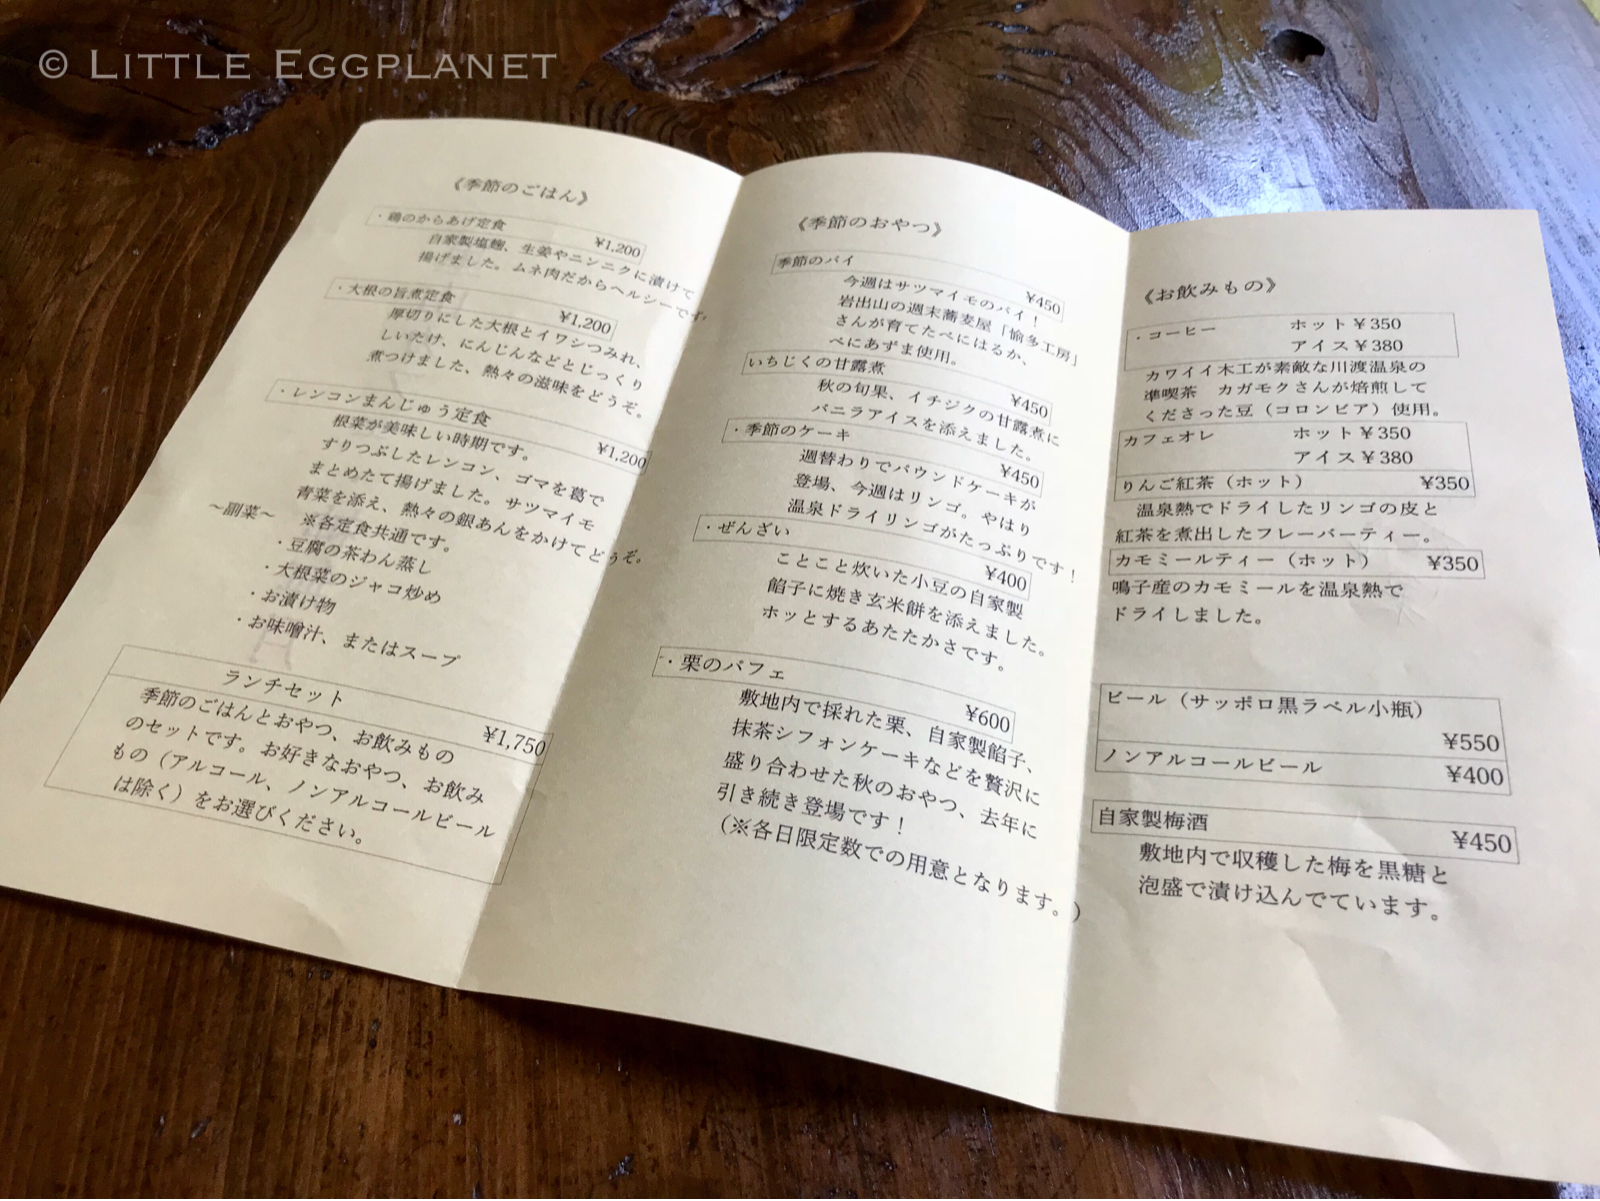 © LITTLE EGGPLANET
《季節のごはん》
・鶏のからあげ定食 ¥1,200
自家製塩麹、生姜やニンニクに漬けて
揚げました。ムネ肉だからヘルシーです
・大根の旨煮定食 ¥1,200
厚切りにした大根とイワシつみれ、
しいたけ、にんじんなどとじっくり
煮つけました、熱々の滋味をどうぞ。
・レンコンまんじゅう定食 ¥1,200
根菜が美味しい時期です。
すりつぶしたレンコン、ゴマを葛で
まとめたて揚げました。サツマイモ
青菜を添え、熱々の銀あんをかけてどうぞ。
~副菜~ ※各定食共通です。
・豆腐の茶わん蒸し
・大根菜のジャコ炒め
・お漬け物
・お味噌汁、またはスープ
ランチセット ¥1,750
季節のごはんとおやつ、お飲みもの
のセットです。お好きなおやつ、お飲み
もの（アルコール、ノンアルコールビール
は除く）をお選びください。
《季節のおやつ》
季節のパイ ¥450
今週はサツマイモのパイ！
岩出山の週末蕎麦屋「愉多工房」
さんが育てたべにはるか、
べにあずま使用。
いちじくの甘露煮 ¥450
秋の旬果、イチジクの甘露煮に
バニラアイスを添えました。
・季節のケーキ ¥450
週替わりでパウンドケーキが
登場、今週はリンゴ。やはり
温泉ドライリンゴがたっぷりです！
・ぜんざい ¥400
ことこと炊いた小豆の自家製
餡子に焼き玄米餅を添えました。
ホッとするあたたかさです。
・栗のパフェ ¥600
敷地内で採れた栗、自家製餡子、
抹茶シフォンケーキなどを贅沢に
盛り合わせた秋のおやつ、去年に
引き続き登場です！
（※各日限定数での用意となります。）
《お飲みもの》
・コーヒー ホット¥350
アイス¥380
カワイイ木工が素敵な川渡温泉の
準喫茶 カガモクさんが焙煎して
くださった豆（コロンビア）使用。
カフェオレ ホット¥350
アイス¥380
りんご紅茶（ホット） ¥350
温泉熱でドライしたリンゴの皮と
紅茶を煮出したフレーバーティー。
カモミールティー（ホット） ¥350
鳴子産のカモミールを温泉熱で
ドライしました。
ビール（サッポロ黒ラベル小瓶）
¥550
ノンアルコールビール ¥400
自家製梅酒 ¥450
敷地内で収穫した梅を黒糖と
泡盛で漬け込んでています。